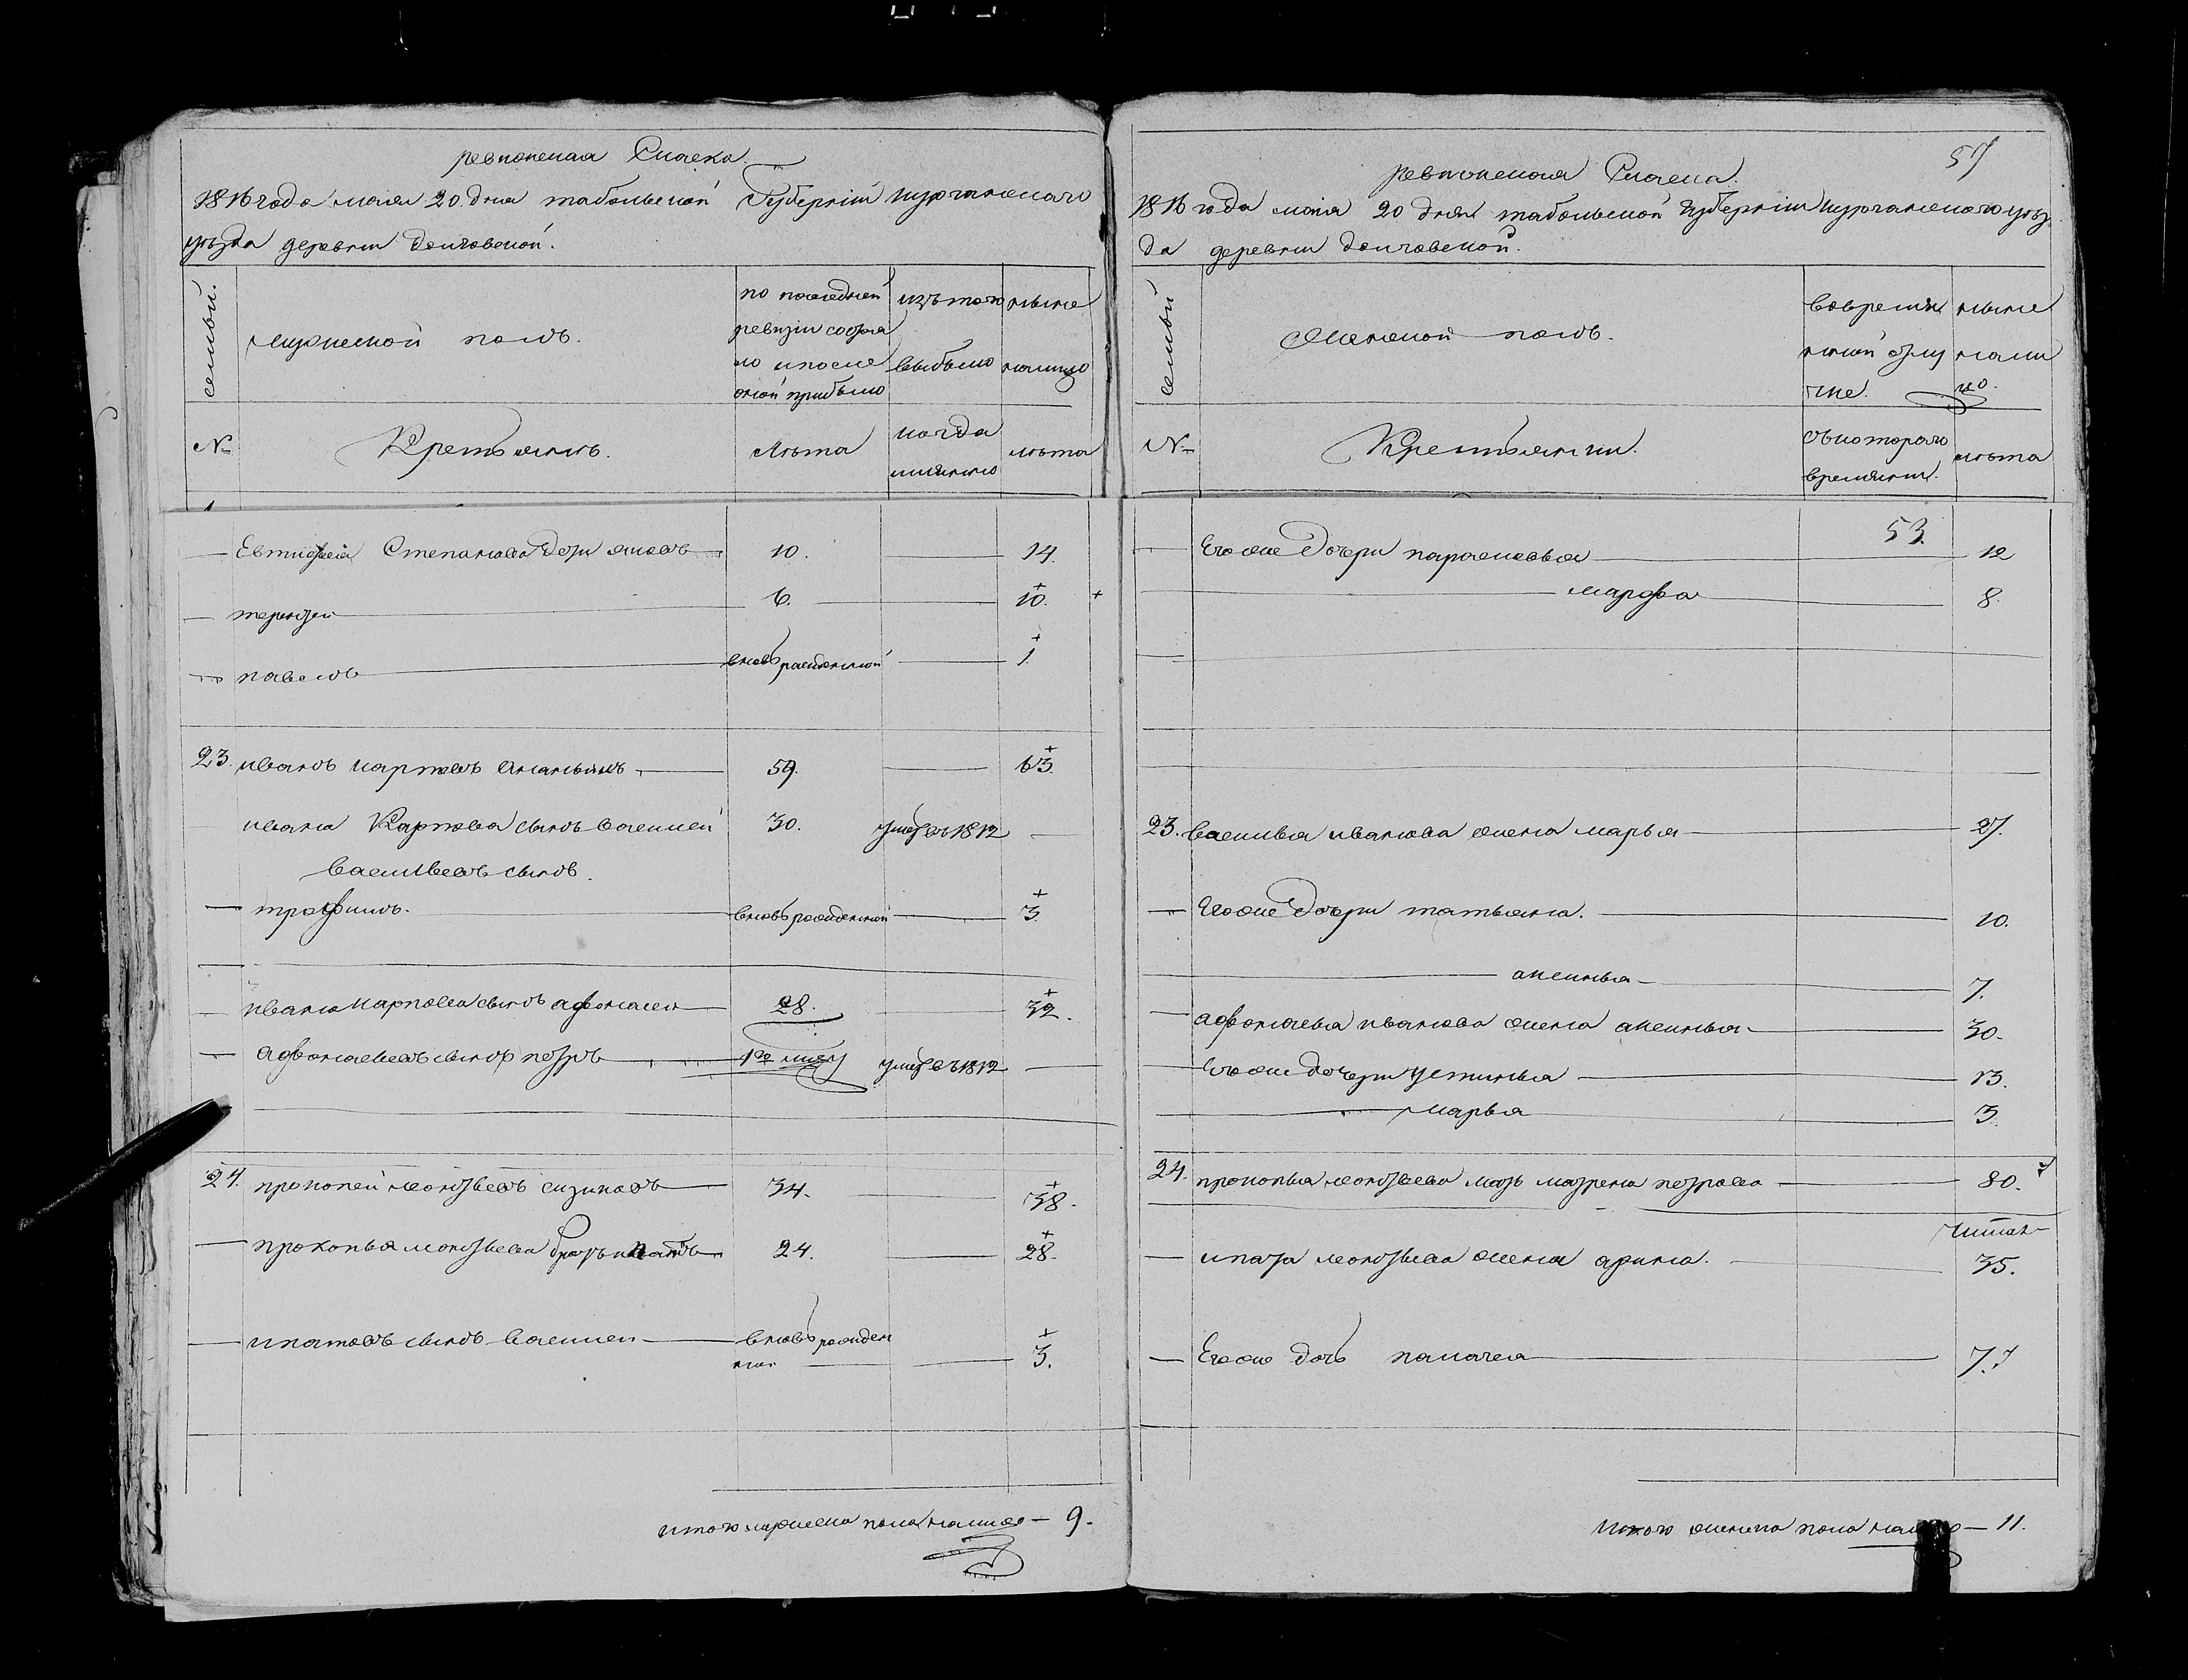 ревизская Сказка.
1816 года маия 20 дня табольской Губернии курганского
уезда деревни долговской.
семьи.
мужеской полъ.
по последней
ревизии состоя
ло и после
оной прибыло
изъ того
выбыло
ныне
налицо
№
Крестьянъ.
лета
когда
имянно
лета
Евтифея Степанова дети яковъ 10. 14.
терентей 6. 10.
павелъ вновь рожденной 1
23. иванъ карповъ ананьинъ 59. 63.
ивана Карпова сынъ василей 30. умре въ 1812
васильевъ сынъ
трофимъ. вновь рожденной 3.
ивана карпова сынъ афонасей 28. 32.
афонасьевъ сынъ петръ умре въ 1812
24. прокопей леонтьевъ сизиковъ 34. 38.
прокопья леонтьева братъ ипатъ 24. 28.
ипатовъ сынъ василей вновь рожден
ной 3.
итого мужеска пола налицо — 9.
57
ревизская Сказка.
1816 года маия 20 дня табольской губернии курганского уез
да деревни долговской.
семьи
Женской полъ.
во времян
ной отлу
чке.
ныне
нали
цо.
№
Крестьянки.
съ котораго
времяни.
лета
53.
Его же дочери парасковья 12
марфа 8.
23. василья иванова жена марья 27.
Его же дочери татьяна. 10.
аксинья 7.
афонасья иванова жена аксинья 30.
Его же дочери устинья 13.
марья 3.
24. прокопья леонтьева мать матрена петрова 80.
ипата леонтьева жена арина. 35.
Его же дочь палагея 7.
итого женска пола налицо — 11.